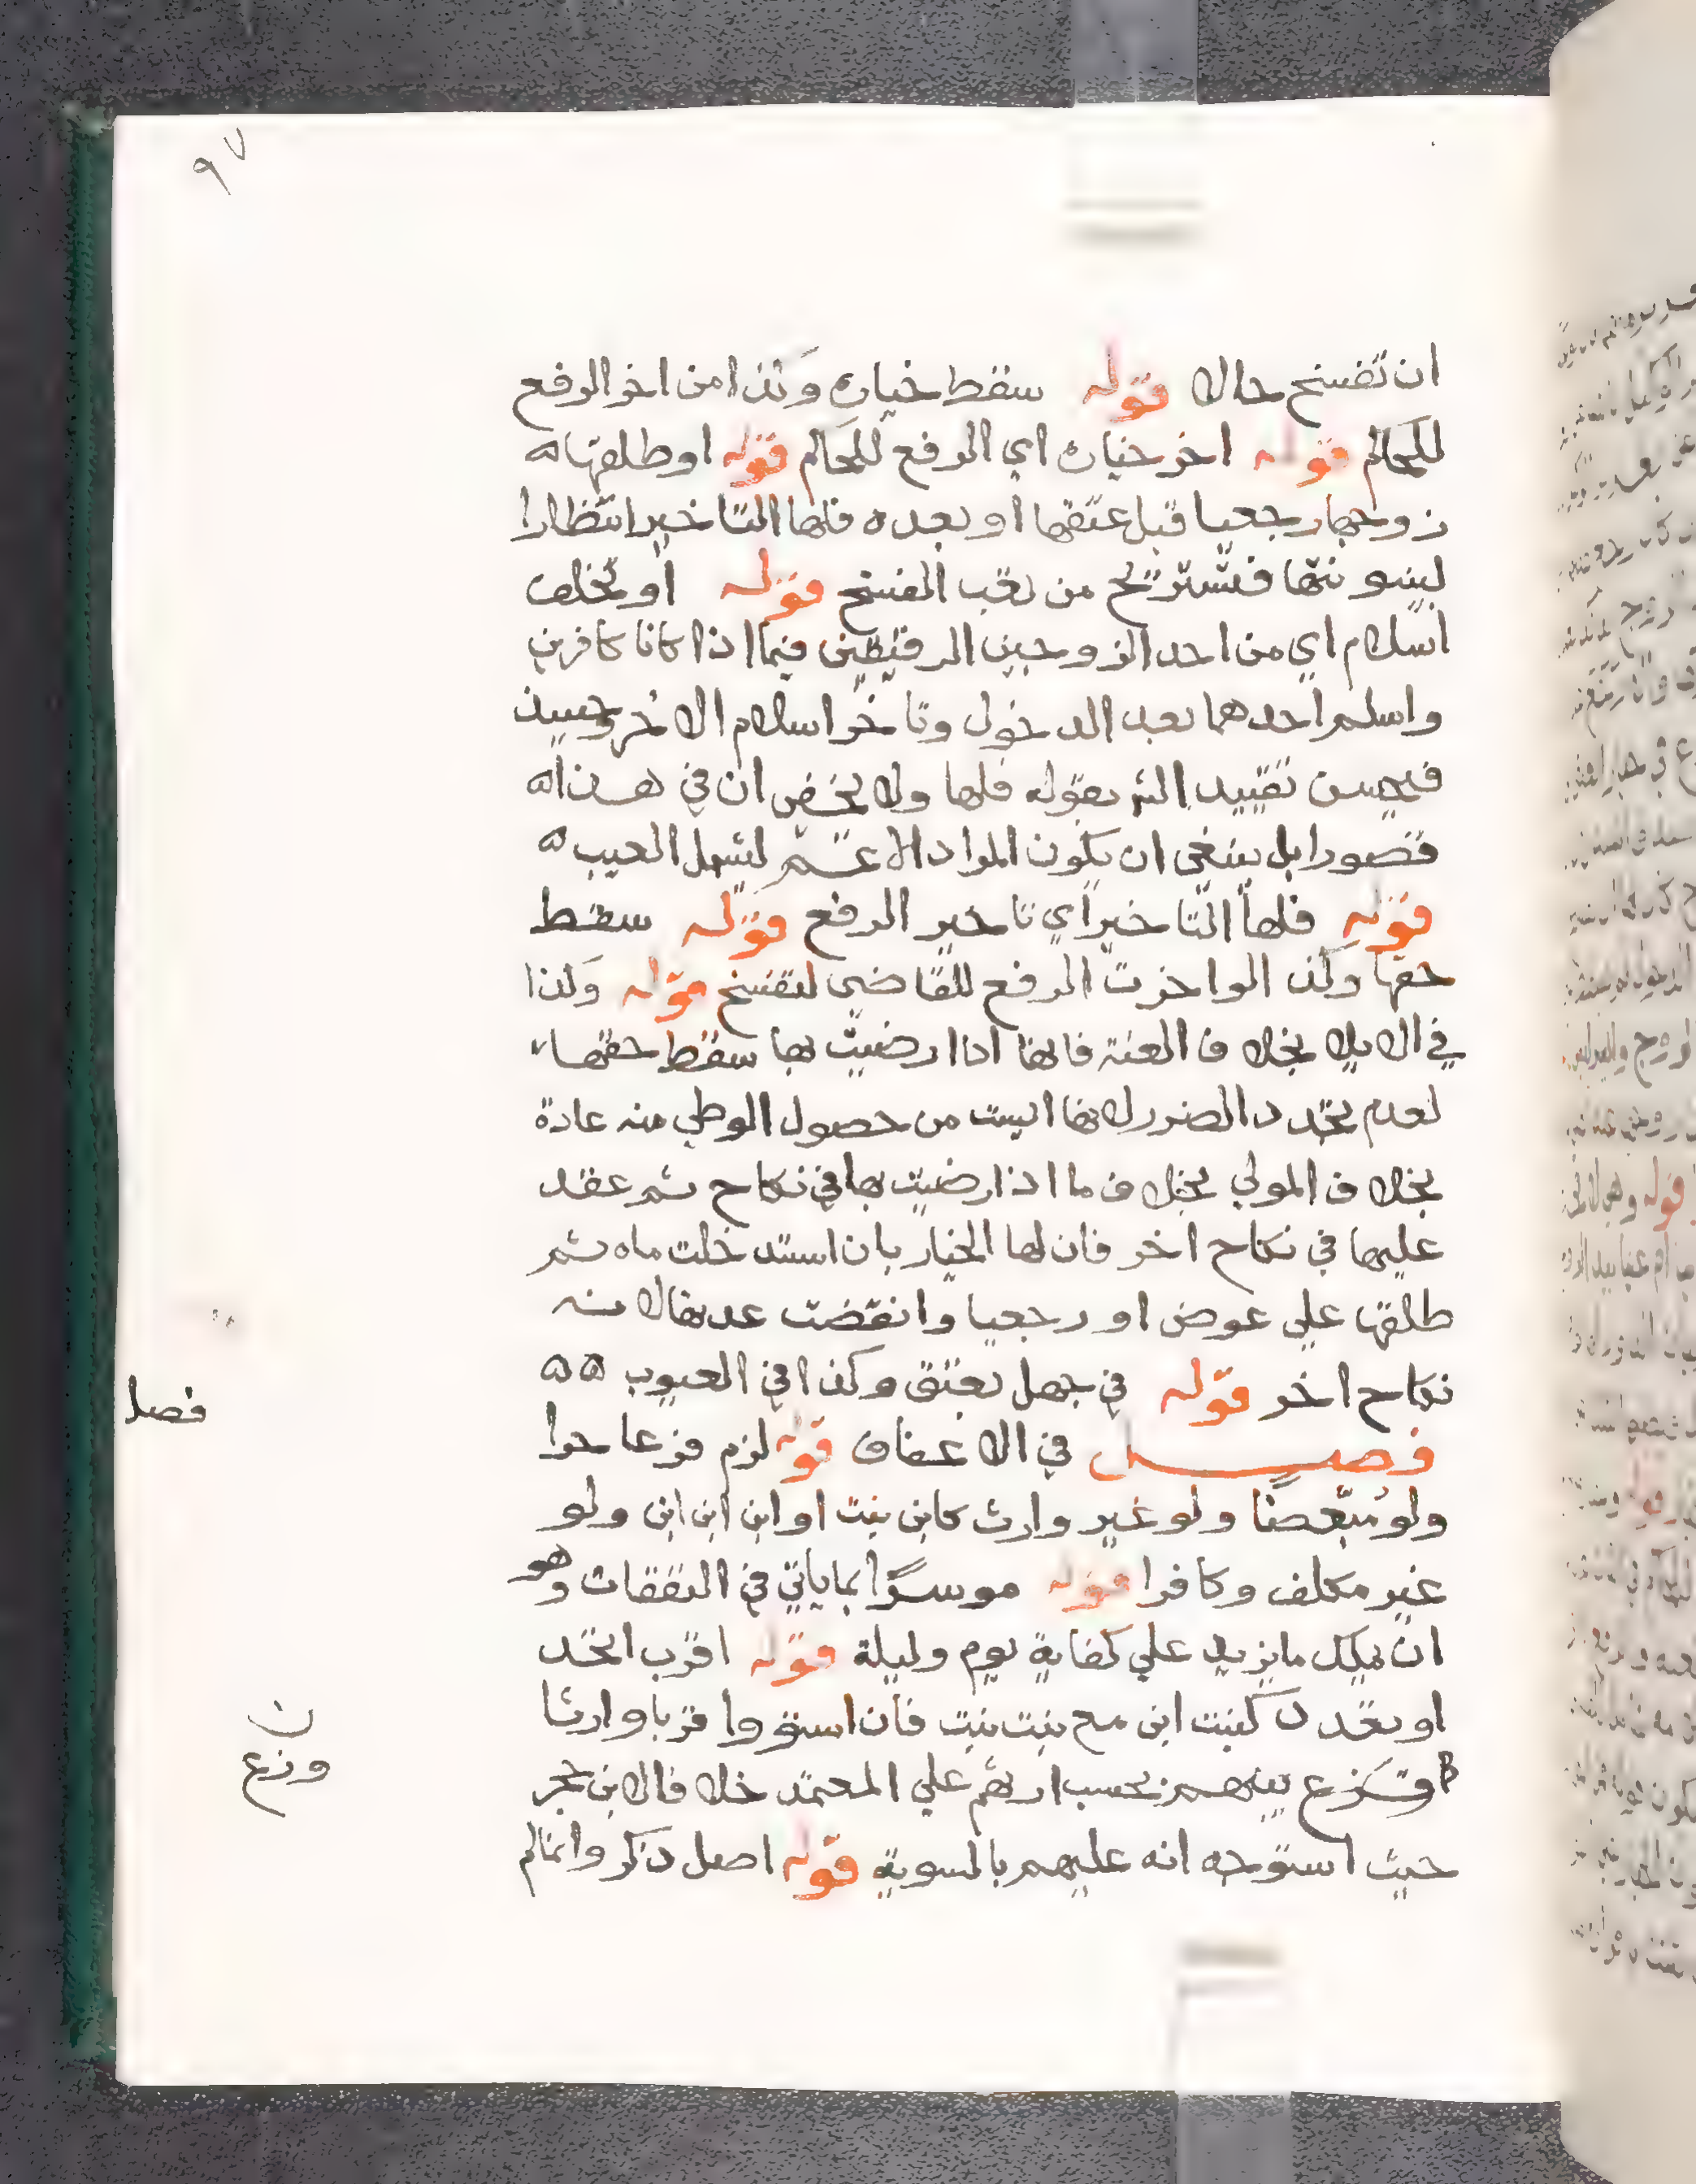 ٩٧
ان تفسخ حالا قوله سقط خياره وكذا من اخر الرفع
للحاكم قوله اخر خياره اي الرفع للحاكم قوله او طلقها ه
زوجها رجعيا قبل عتقها او بعده فلها التاخير انتظارا
لبينونتها فتستريح من تعب الفسخ قوله او تخلف
اسلام اي من احد الزوجين الرقيقين فيما اذا كانا كافرين
واسلم احدهما بعد الدخول وتاخر اسلام الاخر وحينيذ
فيحسن تقييد الش بقوله فلها ولا يخفى ان في هذا ه
قصورا بل ينبغي ان يكون المراد الاعم ليشمل العيب ه
قوله فلها التاخير اي تاخير الرفع قوله سقط
حقها وكذا لو اخرت الرفع للقاضي لتفسخ قوله وكذا
في الايلا بخلاف العنة فانها اذا رضيت بها سقط حقها
لعدم تجدد الضرر لانها ايست من حصول الوطي منه عادة
بخلاف المولي بخلاف ما اذا رضيت بها في نكاح ثم عقد
عليها في نكاح اخر فان لها الخيار بان استدخلت ماه ثم
طلقها علي عوض او رجعيا وانقضت عدتها لانه
نكاح اخر قوله في جهل بعتق وكذا في العيوب ه ه
فصل
فصل في الاعفاف قوله لزم فرعا حرا
ولو مبعضا ولو غير وارث كابن بنت او ابن ابن ابن ولو
غير مكلف وكافرا قوله موسرا بما ياتي في النفقات وهو
ان يملك ما يزيد علي كفاية يوم وليلة قوله اقرب اتحد
او تعدد كبنت ابن مع بنت بنت فان استووا قربا وارثا
وزع
وزع بينهم بحسب ارثهم علي المعتمد خلافا لابن حجر
حيث استوجه انه عليهم بالسوية قوله اصل ذكر وانما لم